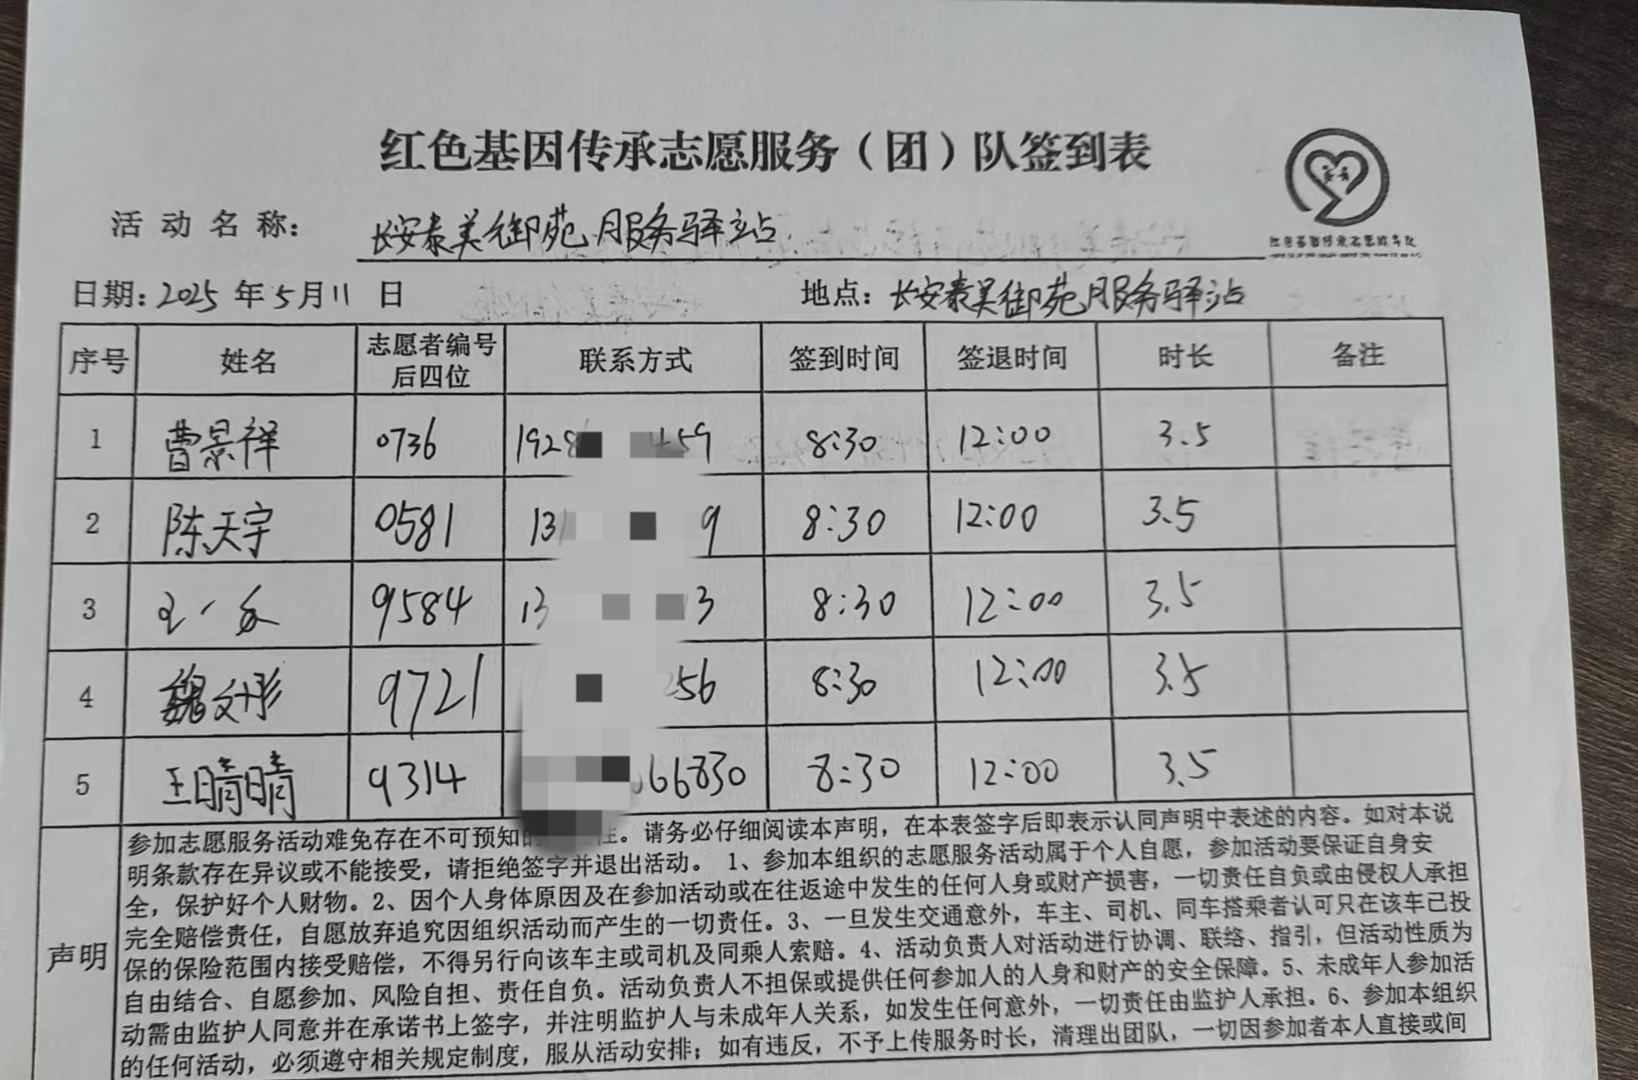 红色基因传承志愿服务（团）队签到表
活动名称：长安泰美御苑服务驿站
日期：2025年5月11日 地点：长安泰美御苑服务驿站
序号 姓名 志愿者编号后四位 联系方式 签到时间 签退时间 时长 备注
1 曹景祥 0736 1928 59 8:30 12:00 3.5
2 陈天宇 0581 13 9 8:30 12:00 3.5
3 9584 13 3 8:30 12:00 3.5
4 魏文彤 9721 256 8:30 12:00 3.5
5 王晴晴 9314 66830 8:30 12:00 3.5
声明
参加志愿服务活动难免存在不可预知的 性。请务必仔细阅读本声明，在本表签字后即表示认同声明中表述的内容。如对本说
明条款存在异议或不能接受，请拒绝签字并退出活动。 1、参加本组织的志愿服务活动属于个人自愿，参加活动要保证自身安
全，保护好个人财物。2、因个人身体原因及在参加活动或在往返途中发生的任何人身或财产损害，一切责任自负或由侵权人承担
完全赔偿责任，自愿放弃追究因组织活动而产生的一切责任。3、一旦发生交通意外，车主、司机、同车搭乘者认可只在该车已投
保的保险范围内接受赔偿，不得另行向该车主或司机及同乘人索赔。4、活动负责人对活动进行协调、联络、指引，但活动性质为
自由结合、自愿参加、风险自担、责任自负。活动负责人不担保或提供任何参加人的人身和财产的安全保障。5、未成年人参加活
动需由监护人同意并在承诺书上签字，并注明监护人与未成年人关系，如发生任何意外，一切责任由监护人承担。6、参加本组织
的任何活动，必须遵守相关规定制度，服从活动安排；如有违反，不予上传服务时长，清理出团队，一切因参加者本人直接或间